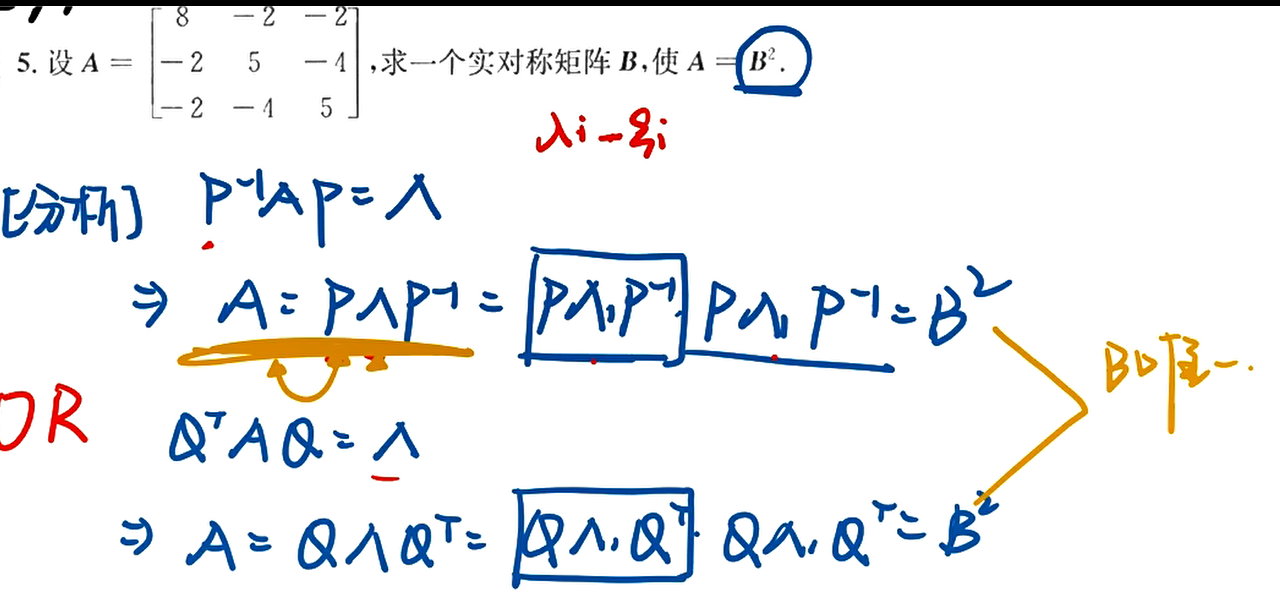 8 -2 -2
5. 设 A = -2 5 -4 ,求一个实对称矩阵 B,使 A = B².
-2 -4 5
λi - ξi
[分析] P⁻¹AP = Λ
⇒ A = PΛP⁻¹ = PΛ₁P⁻¹ · PΛ₁P⁻¹ = B²
OR
QᵀAQ = Λ
⇒ A = QΛQᵀ = QΛ₁Qᵀ · QΛ₁Qᵀ = B²